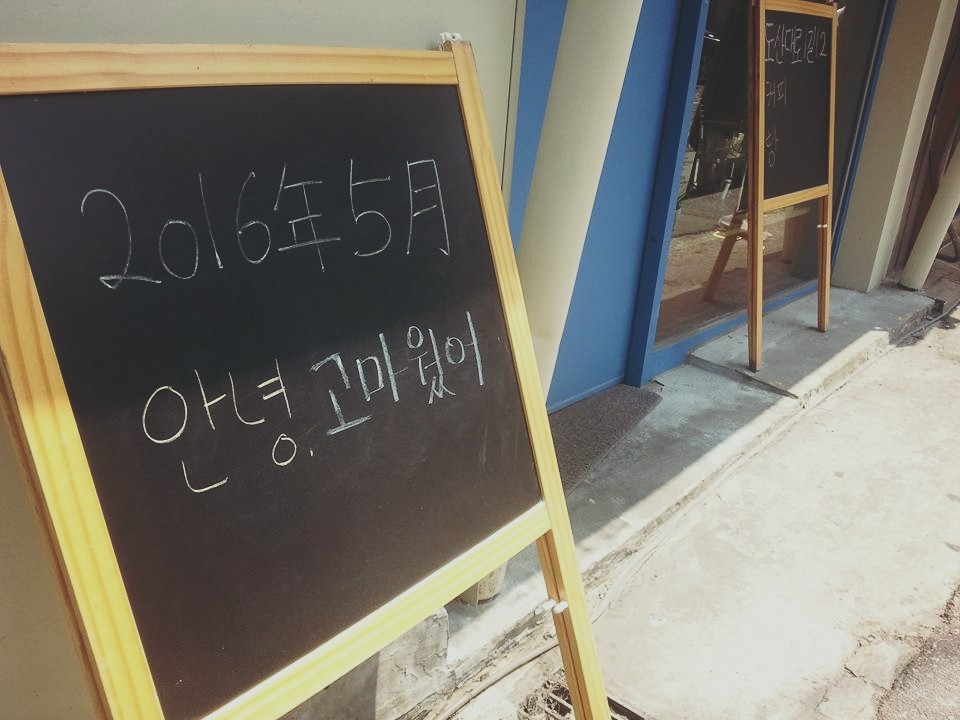 2016年5月
안녕. 고마웠어
도산대로1길12
커피